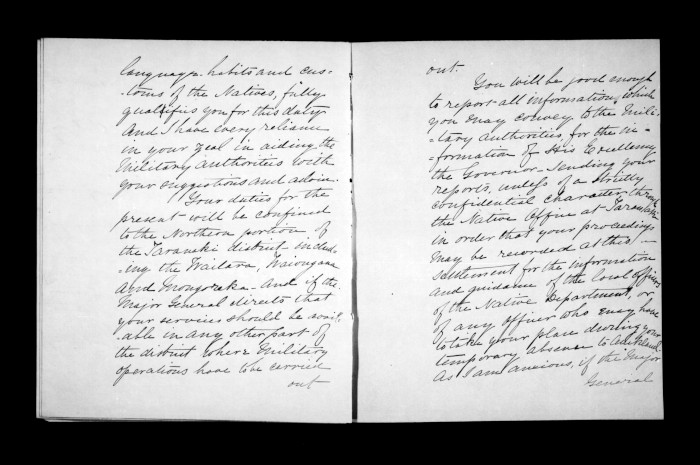 language. habits and cus-
-toms of the Natives, fully
qualifies you for this duty
And I have every reliance
in your zeal in aiding the
Military Authorities with
your suggestions and advice.
Your duties for the
present will be confined
to the Northern portion of
the Taranaki district includ-
-ing the Waitara, Waiongana
and Mangoraka - And if the
Major General directs that
your services should be avail-
-able in any other part of
the district where Military
operations have to be carried
out
out.
You will be good enough
to report all information, which
you may convey to the Mili-
-tary Authorities for the in-
-formation of His Excellency
the Governor - sending your
reports, unless of a strictly
confidential character through
the Native Office at Taranaki
in order that your proceedings
may be recorded at this -
settlement for the information
and guidance of the local officers
of the Native Department, or
of any officer who may have
to take your place during your
temporary absence to Auckland.
As I am anxious, if the Major
General